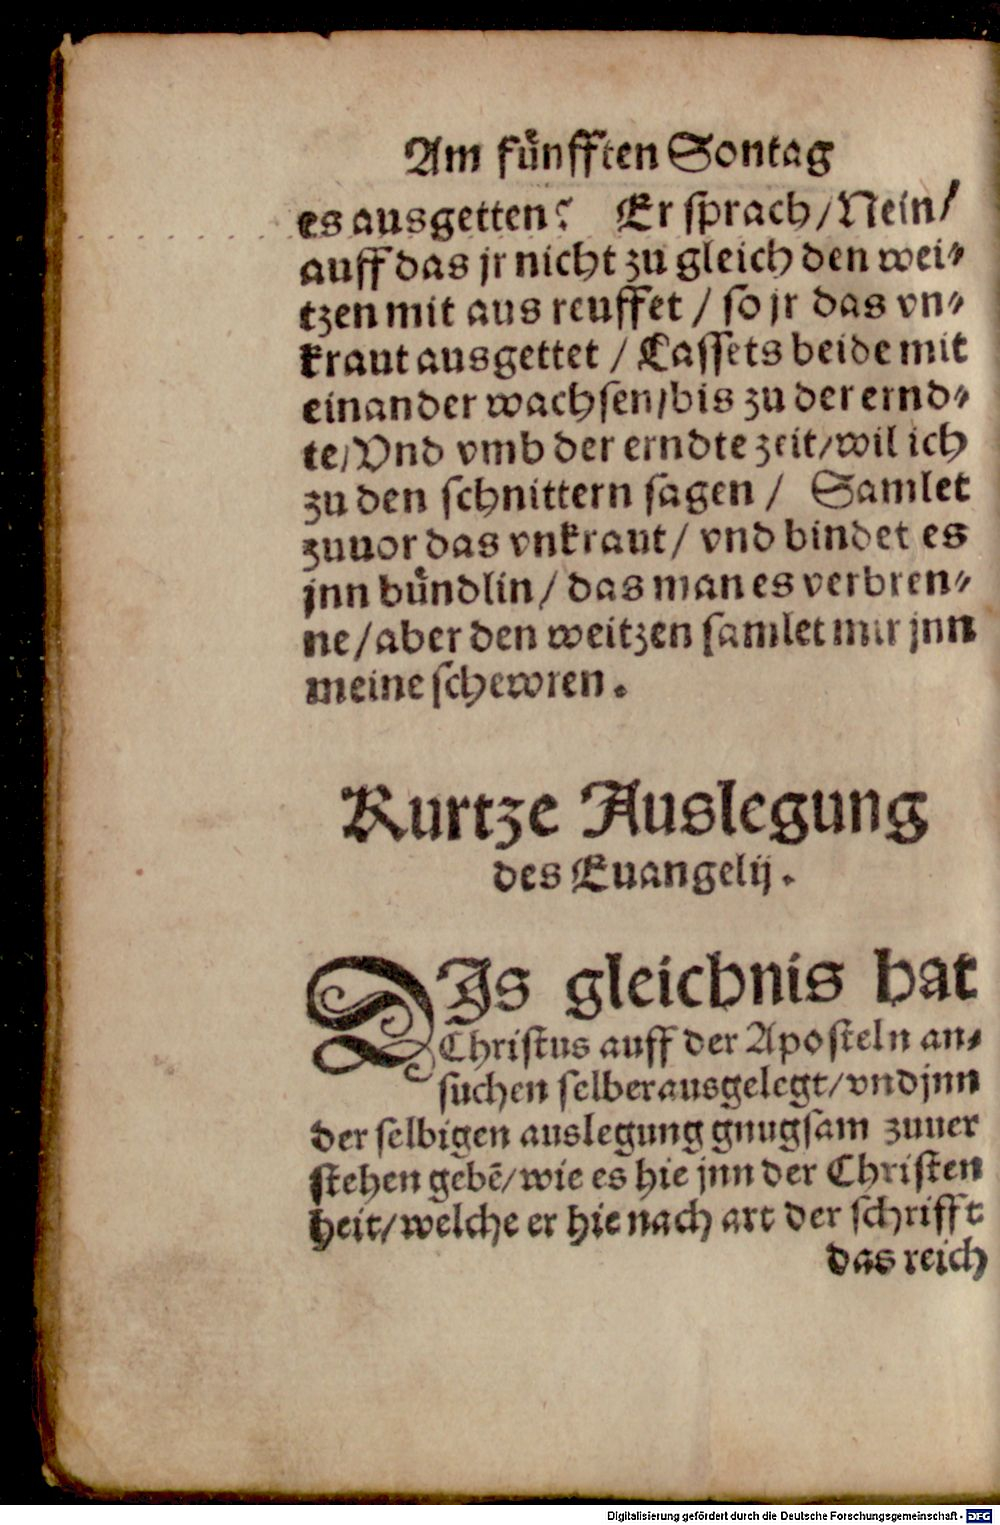 Am fuͤnfften Sontag
es ausgetten? Er sprach/Nein/
auff das jr nicht zu gleich den wei⸗
tzen mit aus reuffet / so jr das vn⸗
kraut ausgettet / Lassets beide mit
einander wachsen/bis zu der ernd⸗
te/Vnd vmb der erndte zeit/wil ich
zu den schnittern sagen / Samlet
zuuor das vnkraut/ vnd bindet es
jnn buͤndlin/ das man es verbren⸗
ne/aber den weitzen samlet mir jnn
meine schewren.
Kurtze Auslegung
des Euangelij.
DIs gleichnis hat
Christus auff der Aposteln an⸗
suchen selber ausgelegt/vnd jnn
der selbigen auslegung gnugsam zuuer
stehen gebẽ/wie es hie jnn der Christen
heit/welche er hie nach art der schrifft
das reich
Digitalisierung gefördert durch die Deutsche Forschungsgemeinschaft - DFG